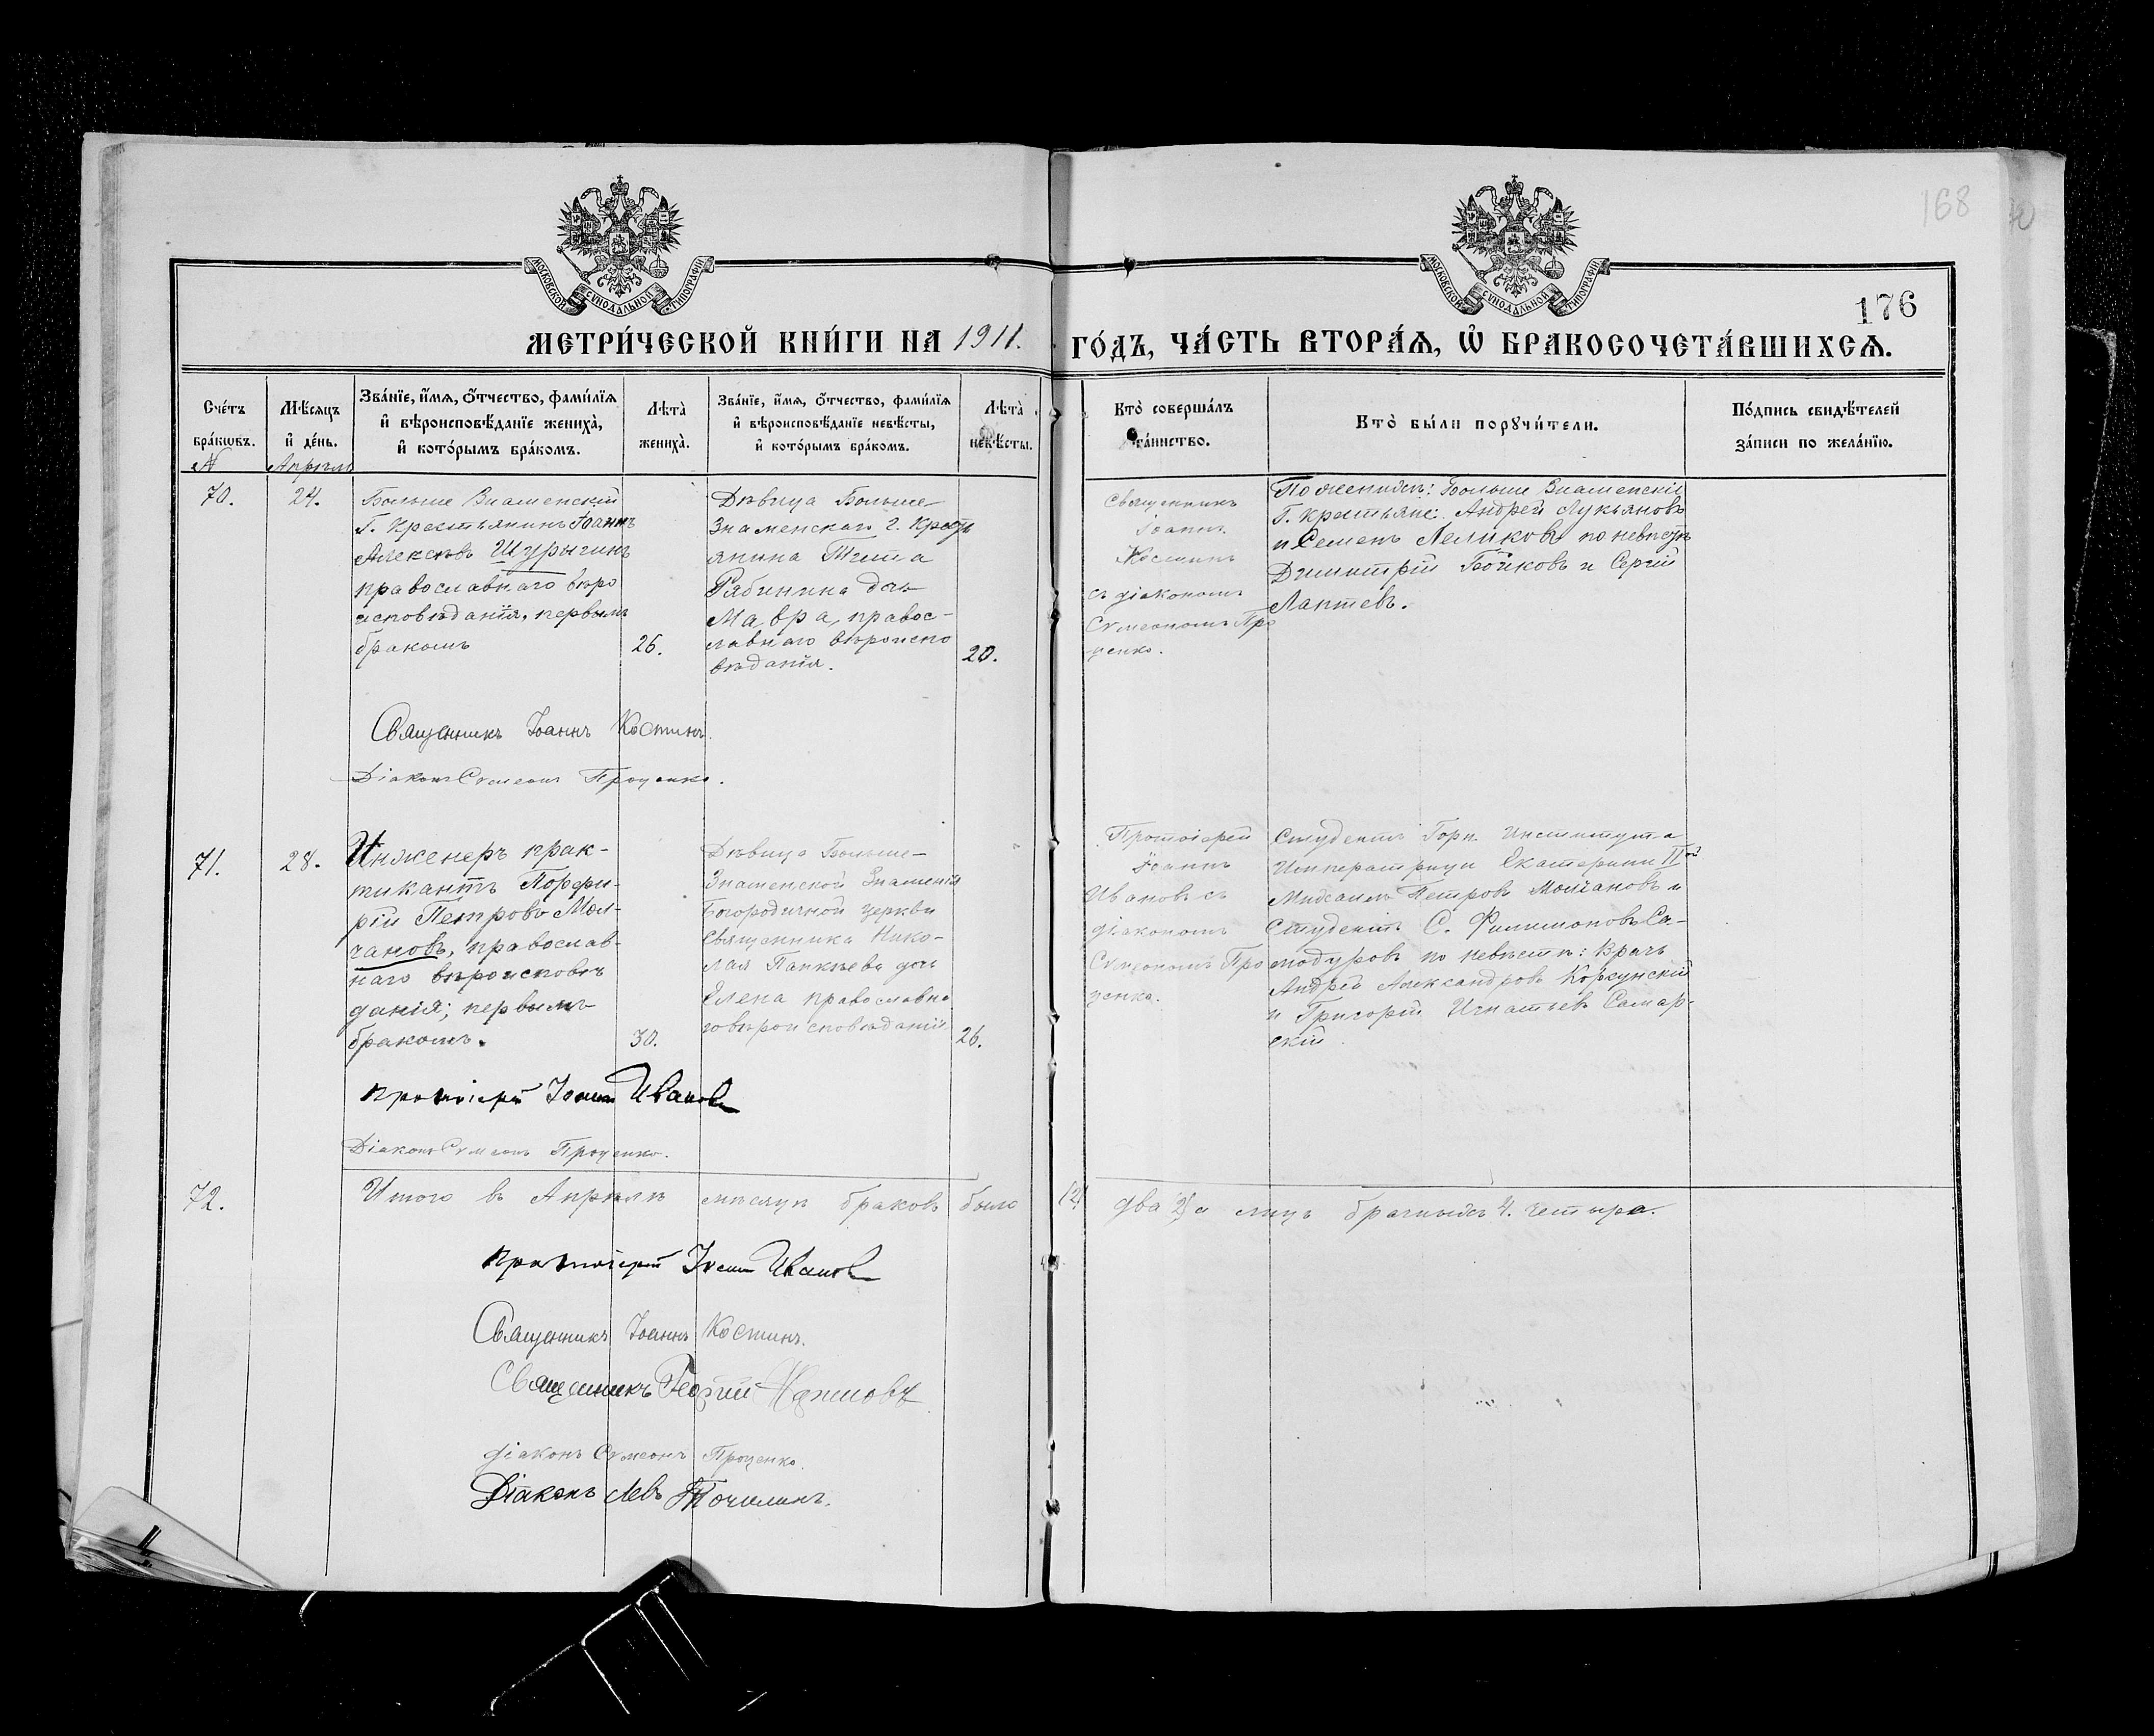 168
176
МОСКОВСКОЙ СѴНОДАЛЬНОЙ ТИПОГРАФІИ
МОСКОВСКОЙ СѴНОДАЛЬНОЙ ТИПОГРАФІИ
МЕТРИ́ЧЕСКОЙ КНИ́ГИ НА 1911. ГО́ДЪ, ЧА́СТЬ ВТОРА́Ѧ, Ѽ БРАКОСОЧЕТА́ВШИХСѦ.
Сче́тъ бра́кωвъ.
Мѣ́сяцъ и҆ де́нь.
Зва́нїе, и҆́мѧ, ѻ҆́тчество, фами́лїѧ и҆ вѣроисповѣ́данїе жениха̀, и҆ кото́рымъ бра́комъ.
Лѣта̀ жениха̀.
Зва́нїе, и҆́мѧ, ѻ҆́тчество, фами́лїѧ и҆ вѣроисповѣ́данїе невѣ́сты, и҆ кото́рымъ бра́комъ.
Лѣта̀ невѣ́сты.
Кто̀ соверша́лъ та́инство.
Кто̀ бы́ли порꙋчи́тели.
По́дпись свидѣ́телей за́писи по жела́нїю.
№
Апрѣль
70.
24.
Больше Знаменскій
Г. Крестьянинъ Іоаннъ
Алексѣевъ Шурыгинъ
православнаго вѣро
исповѣданія, первымъ
бракомъ
26.
Дѣвица Больше-
Знаменской г. Кресть
янина Тита
Рябинина дочь
Мавра, правос-
лавнаго вѣроиспо
вѣданія.
20.
Священникъ
Іоаннъ
Костинъ
съ діакономъ
Сѵмеономъ Про
ценко.
По женихѣ: Больше Знаменскіе
Г. крестьяне: Андрей Лукьяновъ
и Семенъ Леликовъ по невѣстѣ
Димитрій Бойковъ и Сергій
Лаптевъ.
Священникъ Іоаннъ Костинъ.
Діаконъ Сѵмеонъ Проценко.
71.
28.
Инженеръ прак-
тикантъ Порфи-
рій Петровъ Мол-
чановъ, православ-
наго вѣроисповѣ
данія; первымъ
бракомъ.
30.
Дѣвица Больше-
Знаменской Знаменія
Богородичной церкви
Священника Нико-
лая Панкѣева дочь
Елена православна
го вѣроисповѣданія
26.
Протоіерей
Іоаннъ
Ивановъ съ
діакономъ
Сѵмеономъ Про
ценко.
Студентъ Горн. Института
Императрицы Екатерины II ой
Михаилъ Петровъ Молчановъ и
Студентъ С. Филимоновъ Са-
модуровъ по невѣстѣ: Врачъ
Андрей Александровъ Корсунскій
и Григорій Игнатьевъ Самар-
скій
Протоіерей Іоаннъ Ивановъ
Діаконъ Сѵмеонъ Проценко.
72.
Итого въ Апрѣлѣ мѣсяцѣ браковъ было (2) два (2) а лицъ брачныхъ 4. четыре.
Протоіерей Іоаннъ Ивановъ
Священникъ Іоаннъ Костинъ.
Священникъ Георгій
діаконъ Сѵмеонъ Проценко.
Діаконъ Левъ Точилинъ.